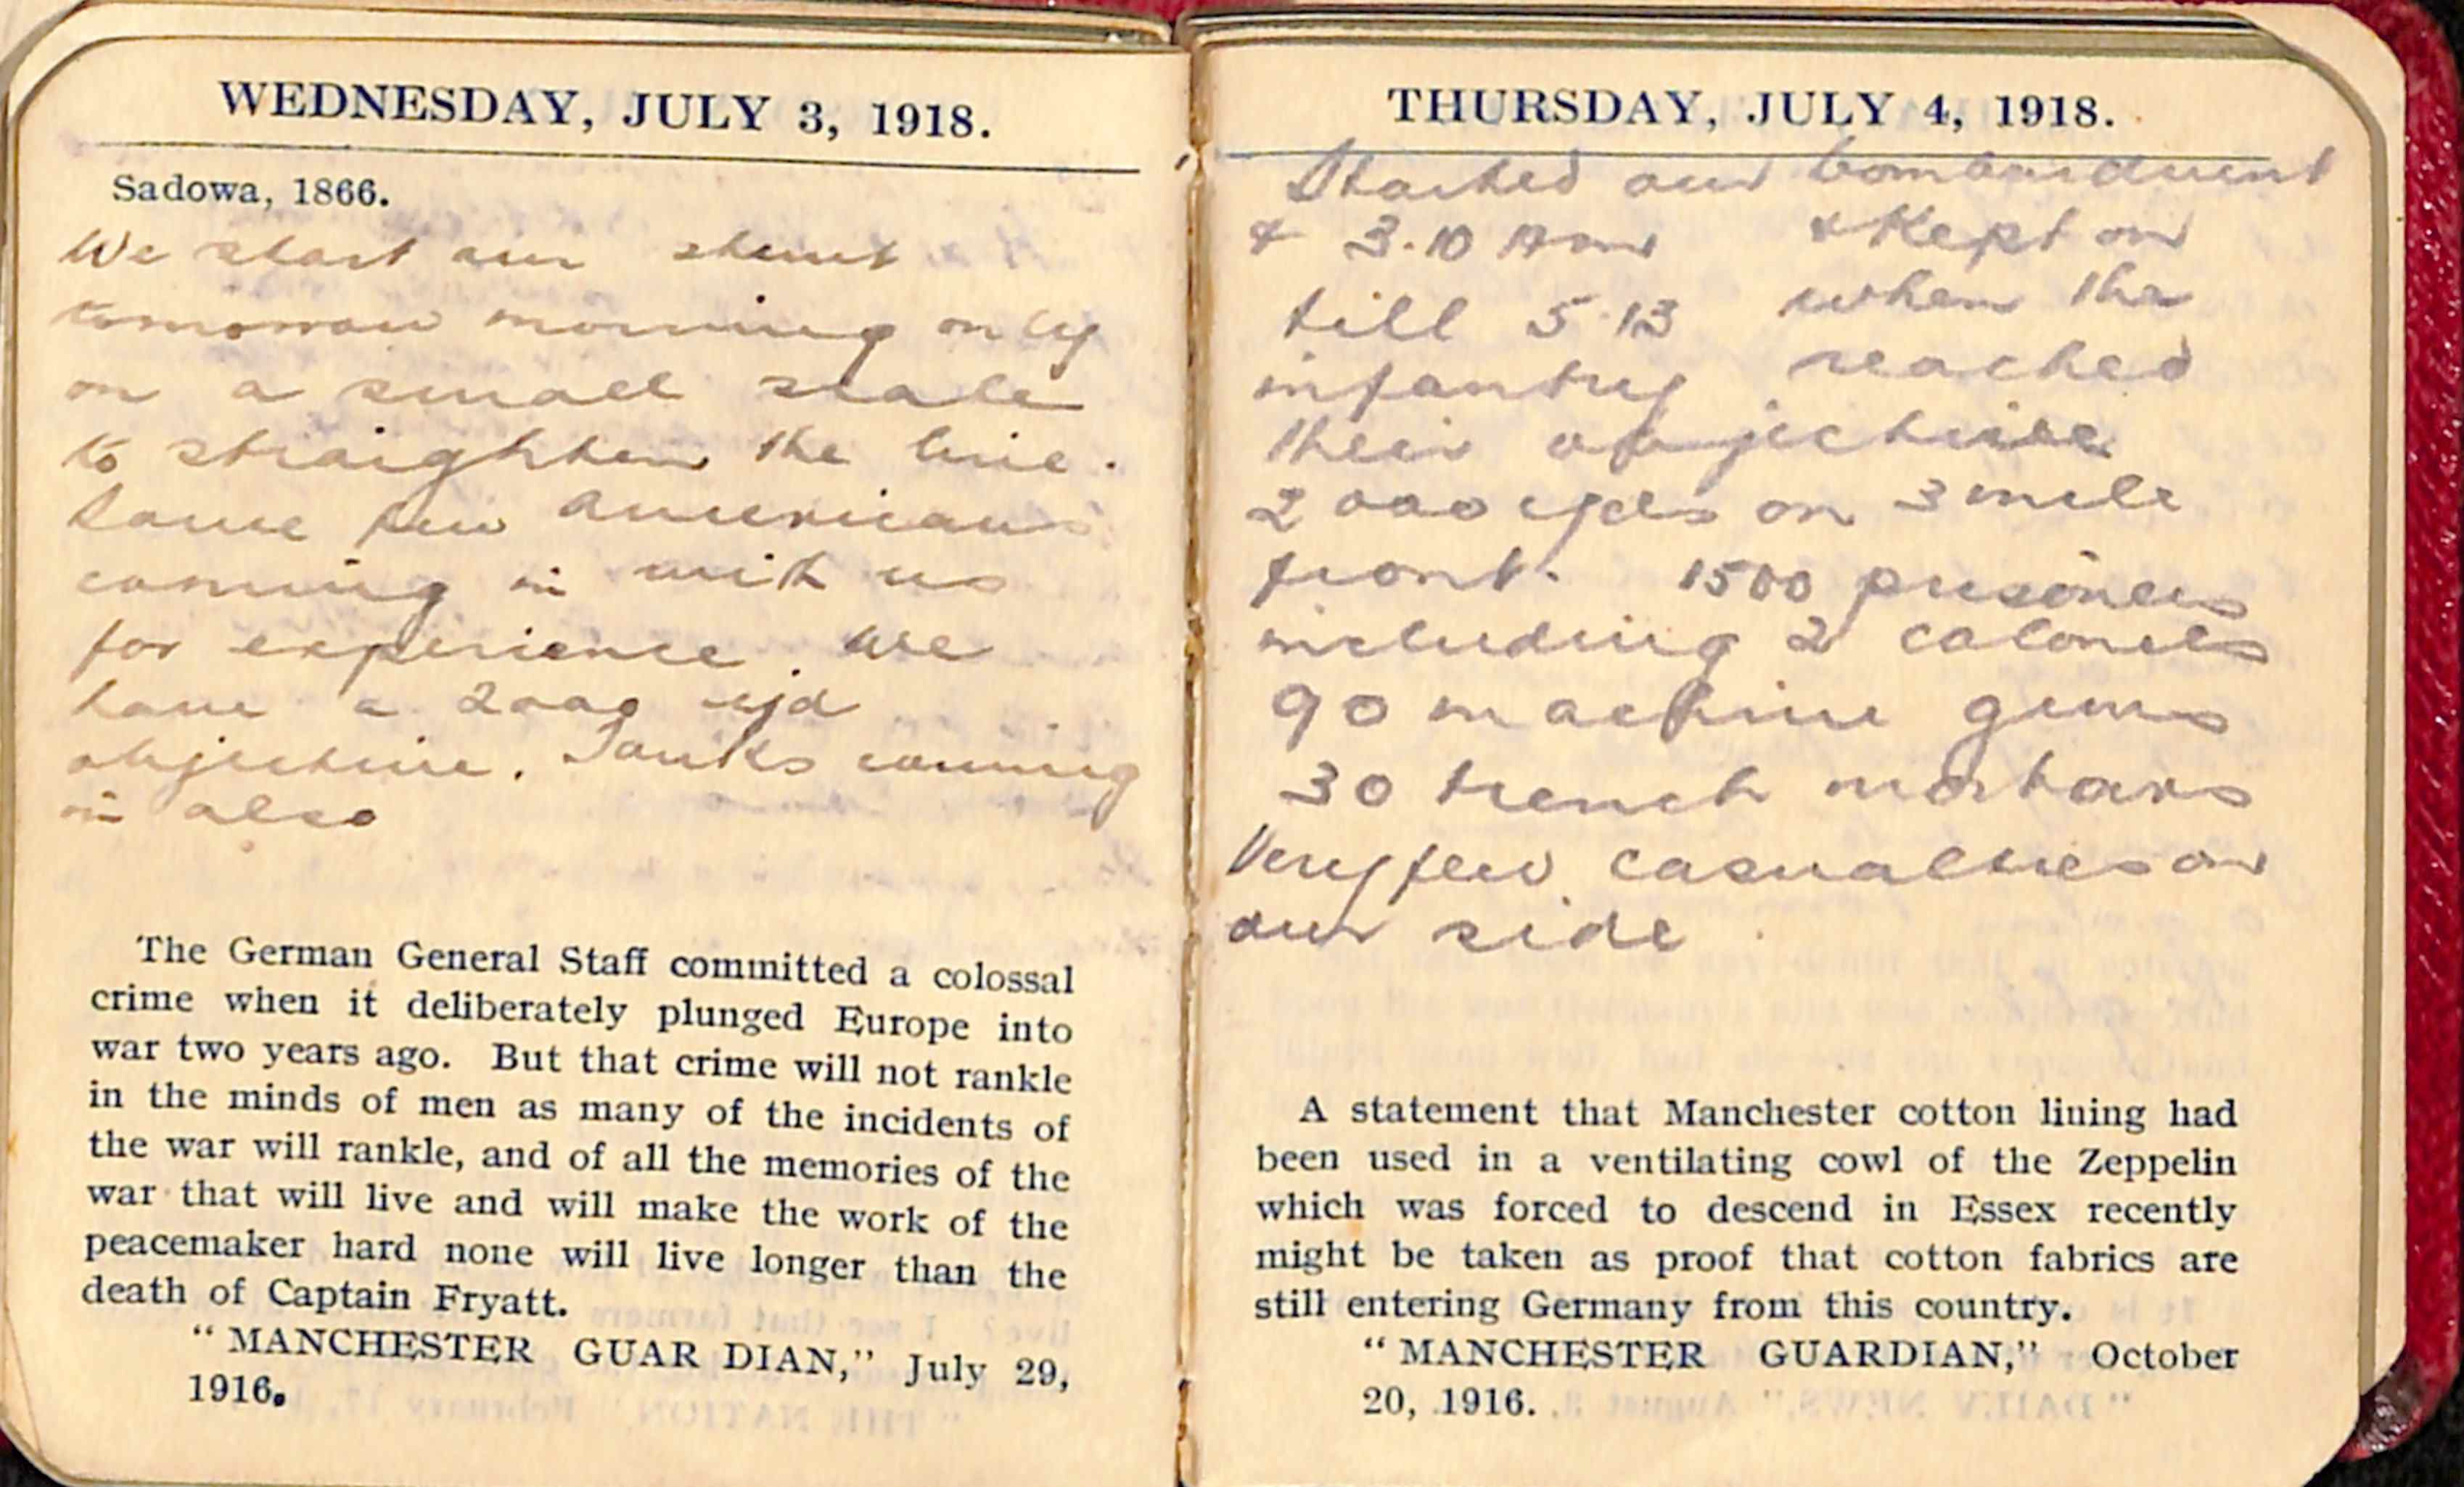 WEDNESDAY, JULY 3, 1918.
Sadowa, 1866.
We start our stunt
tomorrow morning only
on a small scale
to straighten the line.
Have few Americans
coming in with us
for experience. We
have a 2000 yd
objective. Tanks coming
in also
The German General Staff committed a colossal
crime when it deliberately plunged Europe into
war two years ago. But that crime will not rankle
in the minds of men as many of the incidents of
the war will rankle, and of all the memories of the
war that will live and will make the work of the
peacemaker hard none will live longer than the
death of Captain Fryatt.
"MANCHESTER GUAR DIAN," July 29,
1916.
THURSDAY, JULY 4, 1918.
Started our bombardment
& 3.10 Am & Kept on
till 5.13 when the
infantry reached
their objective
2000 yds on 3 mile
front. 1500 prisoners
including 2 colonels
90 machine guns
30 trench mortars
Very few casualties on
our side
A statement that Manchester cotton lining had
been used in a ventilating cowl of the Zeppelin
which was forced to descend in Essex recently
might be taken as proof that cotton fabrics are
still entering Germany from this country.
"MANCHESTER GUARDIAN," October
20, 1916.